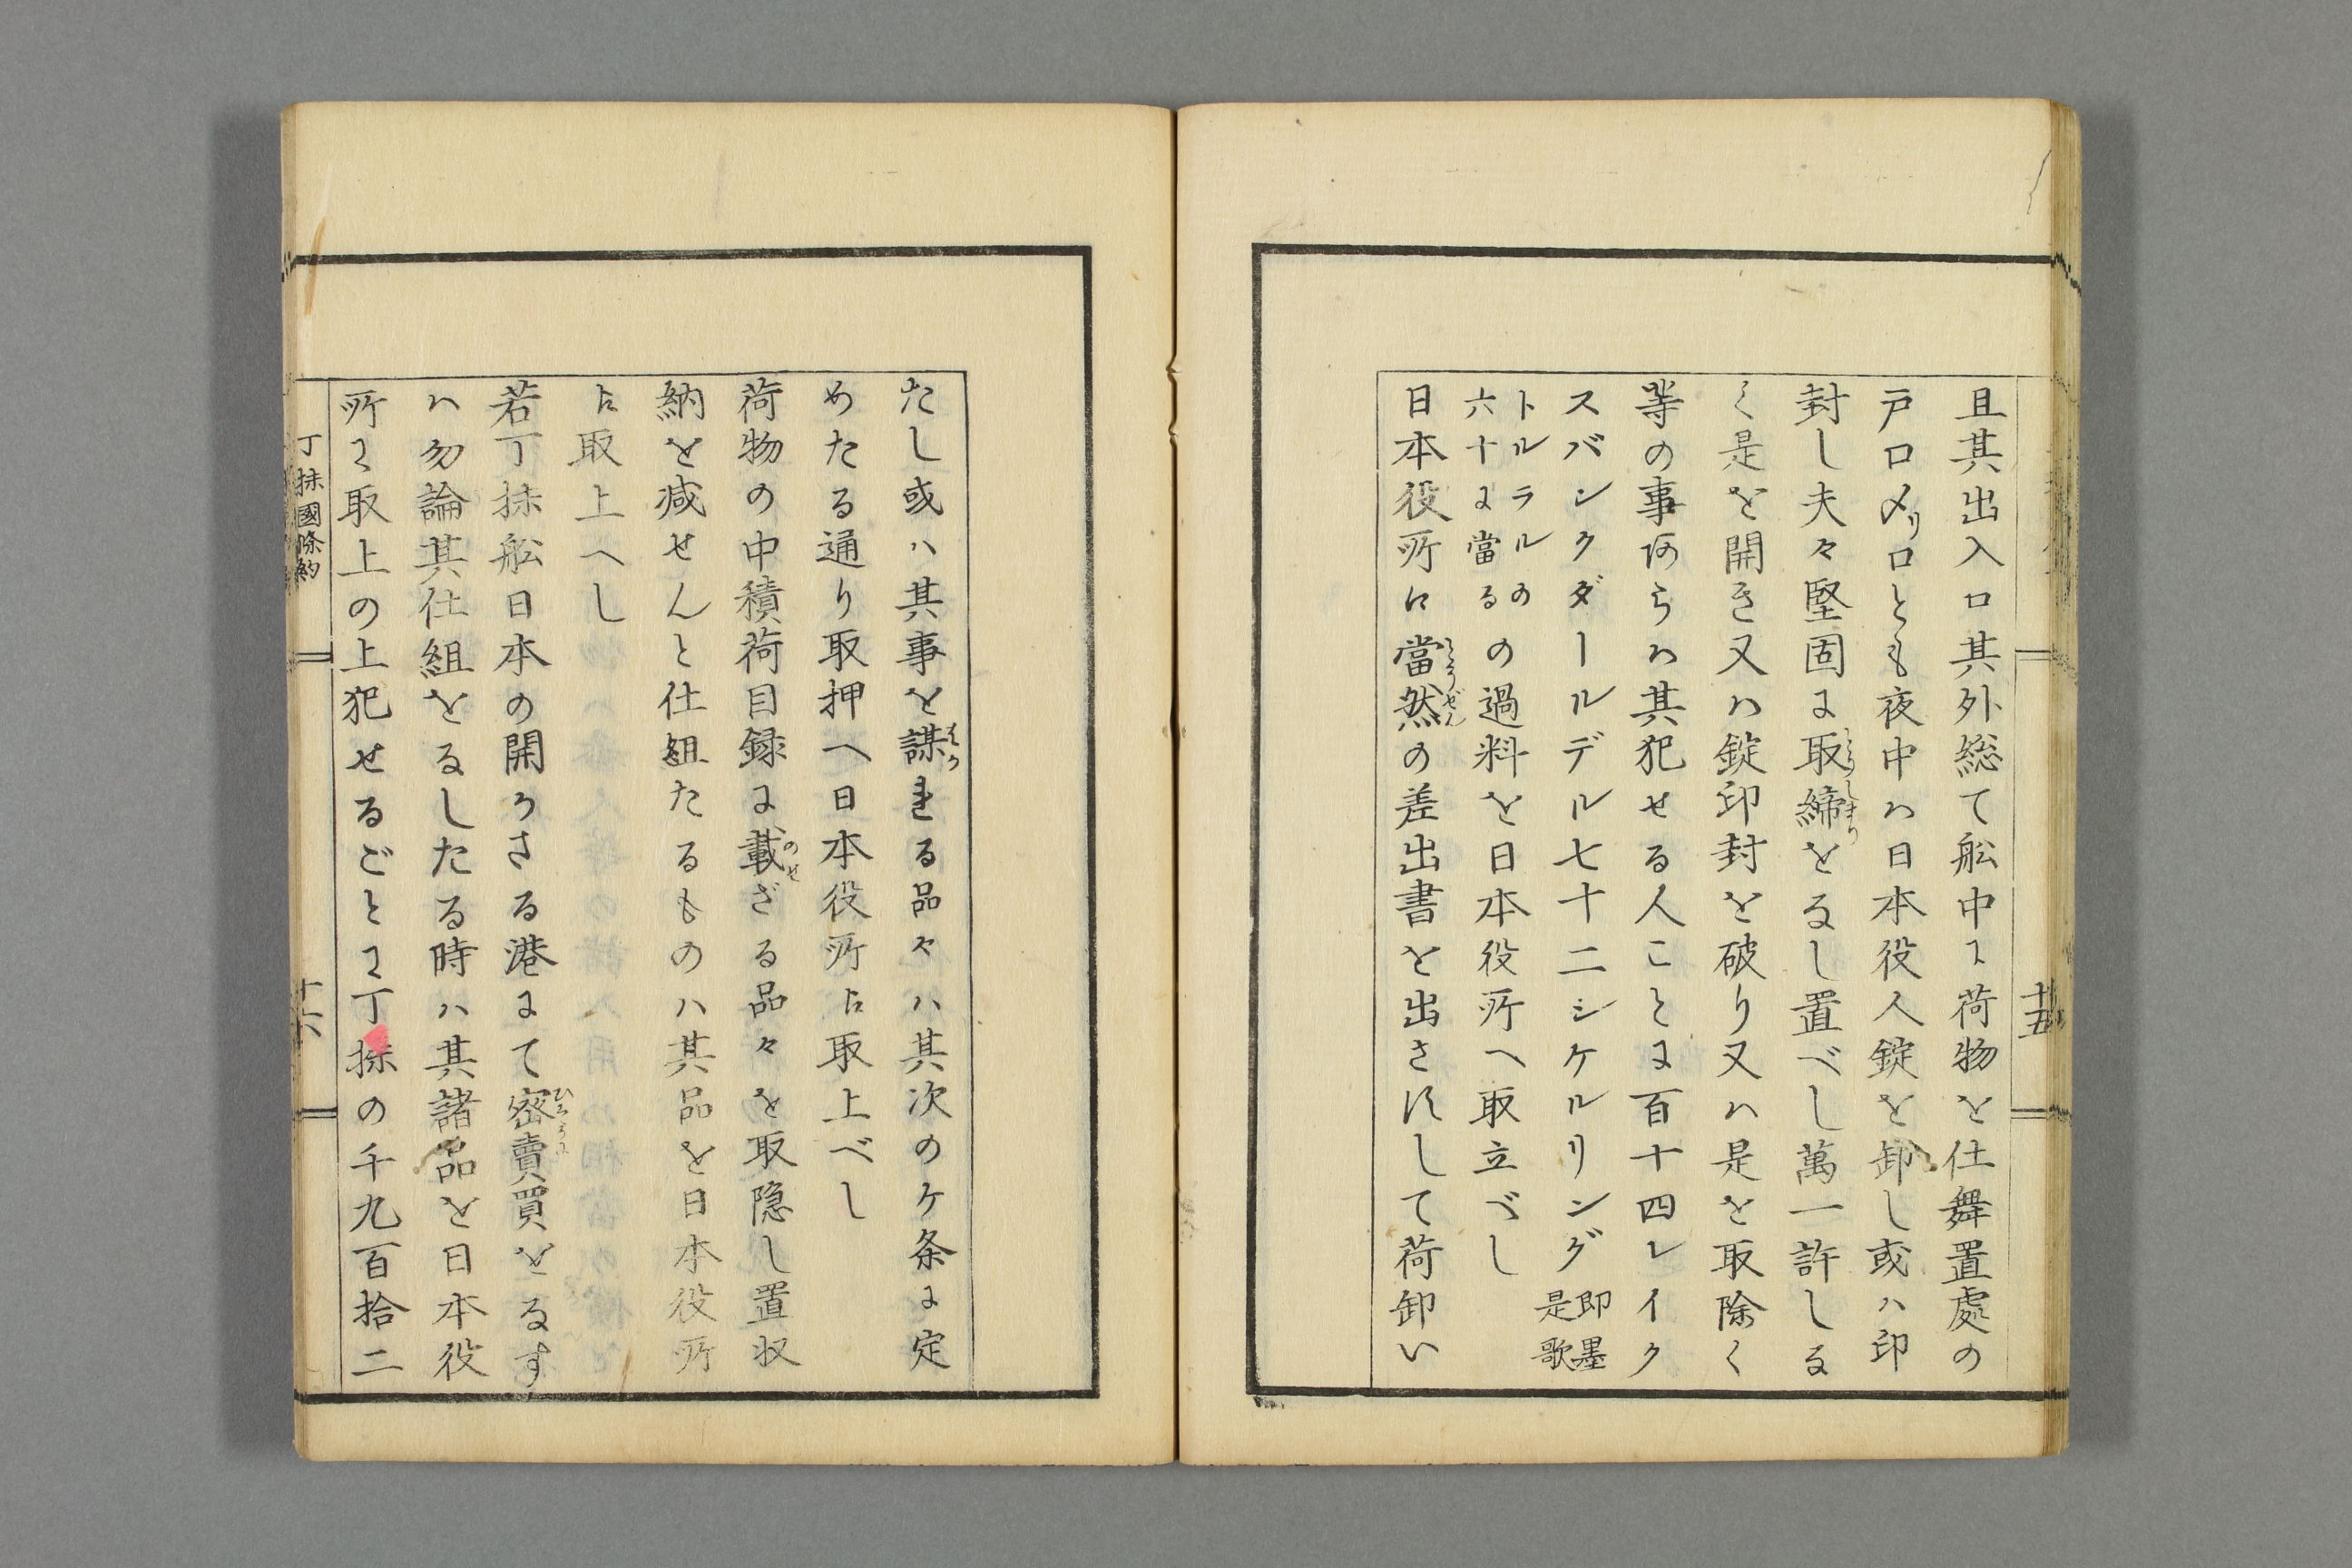 且其出入口其外総て舩中に荷物を仕舞置處の
戸口〆リ口とも夜中ハ日本役人錠を卸し或ハ印
封し夫々堅固に取締をなし置べし萬一許しな
く是を開き又ハ錠印封を破り又ハ是を取除く
等の事あらハ其犯せる人ことに百十四レイク
スバンクダールルデル七十二シケルリング即墨是歌
トルラルの六十に當るの過料を日本役所へ取立べし
日本役所に當然の差出書を出さずして荷卸い
十五
たし或ハ其事を謀れる品々ハ其次のケ条に定
めたる通り取押へ日本役所に取上べし
荷物の中積荷目録に載ざる品々を取隠し置収
納を減せんと仕組たるものハ其品を日本役所
に取上へし
若丁抹舩日本の開かさる港にて密賣買をなす
ハ勿論其仕組をなしたる時ハ其諸品を日本役
所に取上の上犯せるごとに丁抹の千九百拾二
丁抹國條約
十六